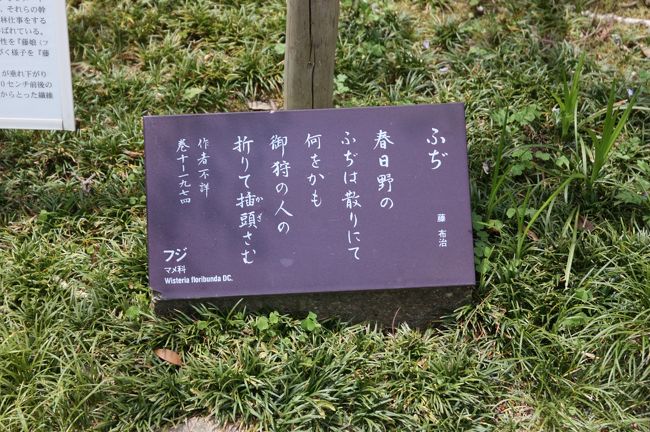 ふぢ
藤 布治
春日野の
ふぢは散りにて
何をかも
御狩の人の
折りて插頭さむ
かざ
作者不詳
巻十－一九七四
フジ
マメ科
Wisteria floribunda DC.
、それらの幹
林仕事をする
ばれている。
性を『藤娘（フ
く様子を『藤
が垂れ下がり
0センチ前後の
からとった繊維